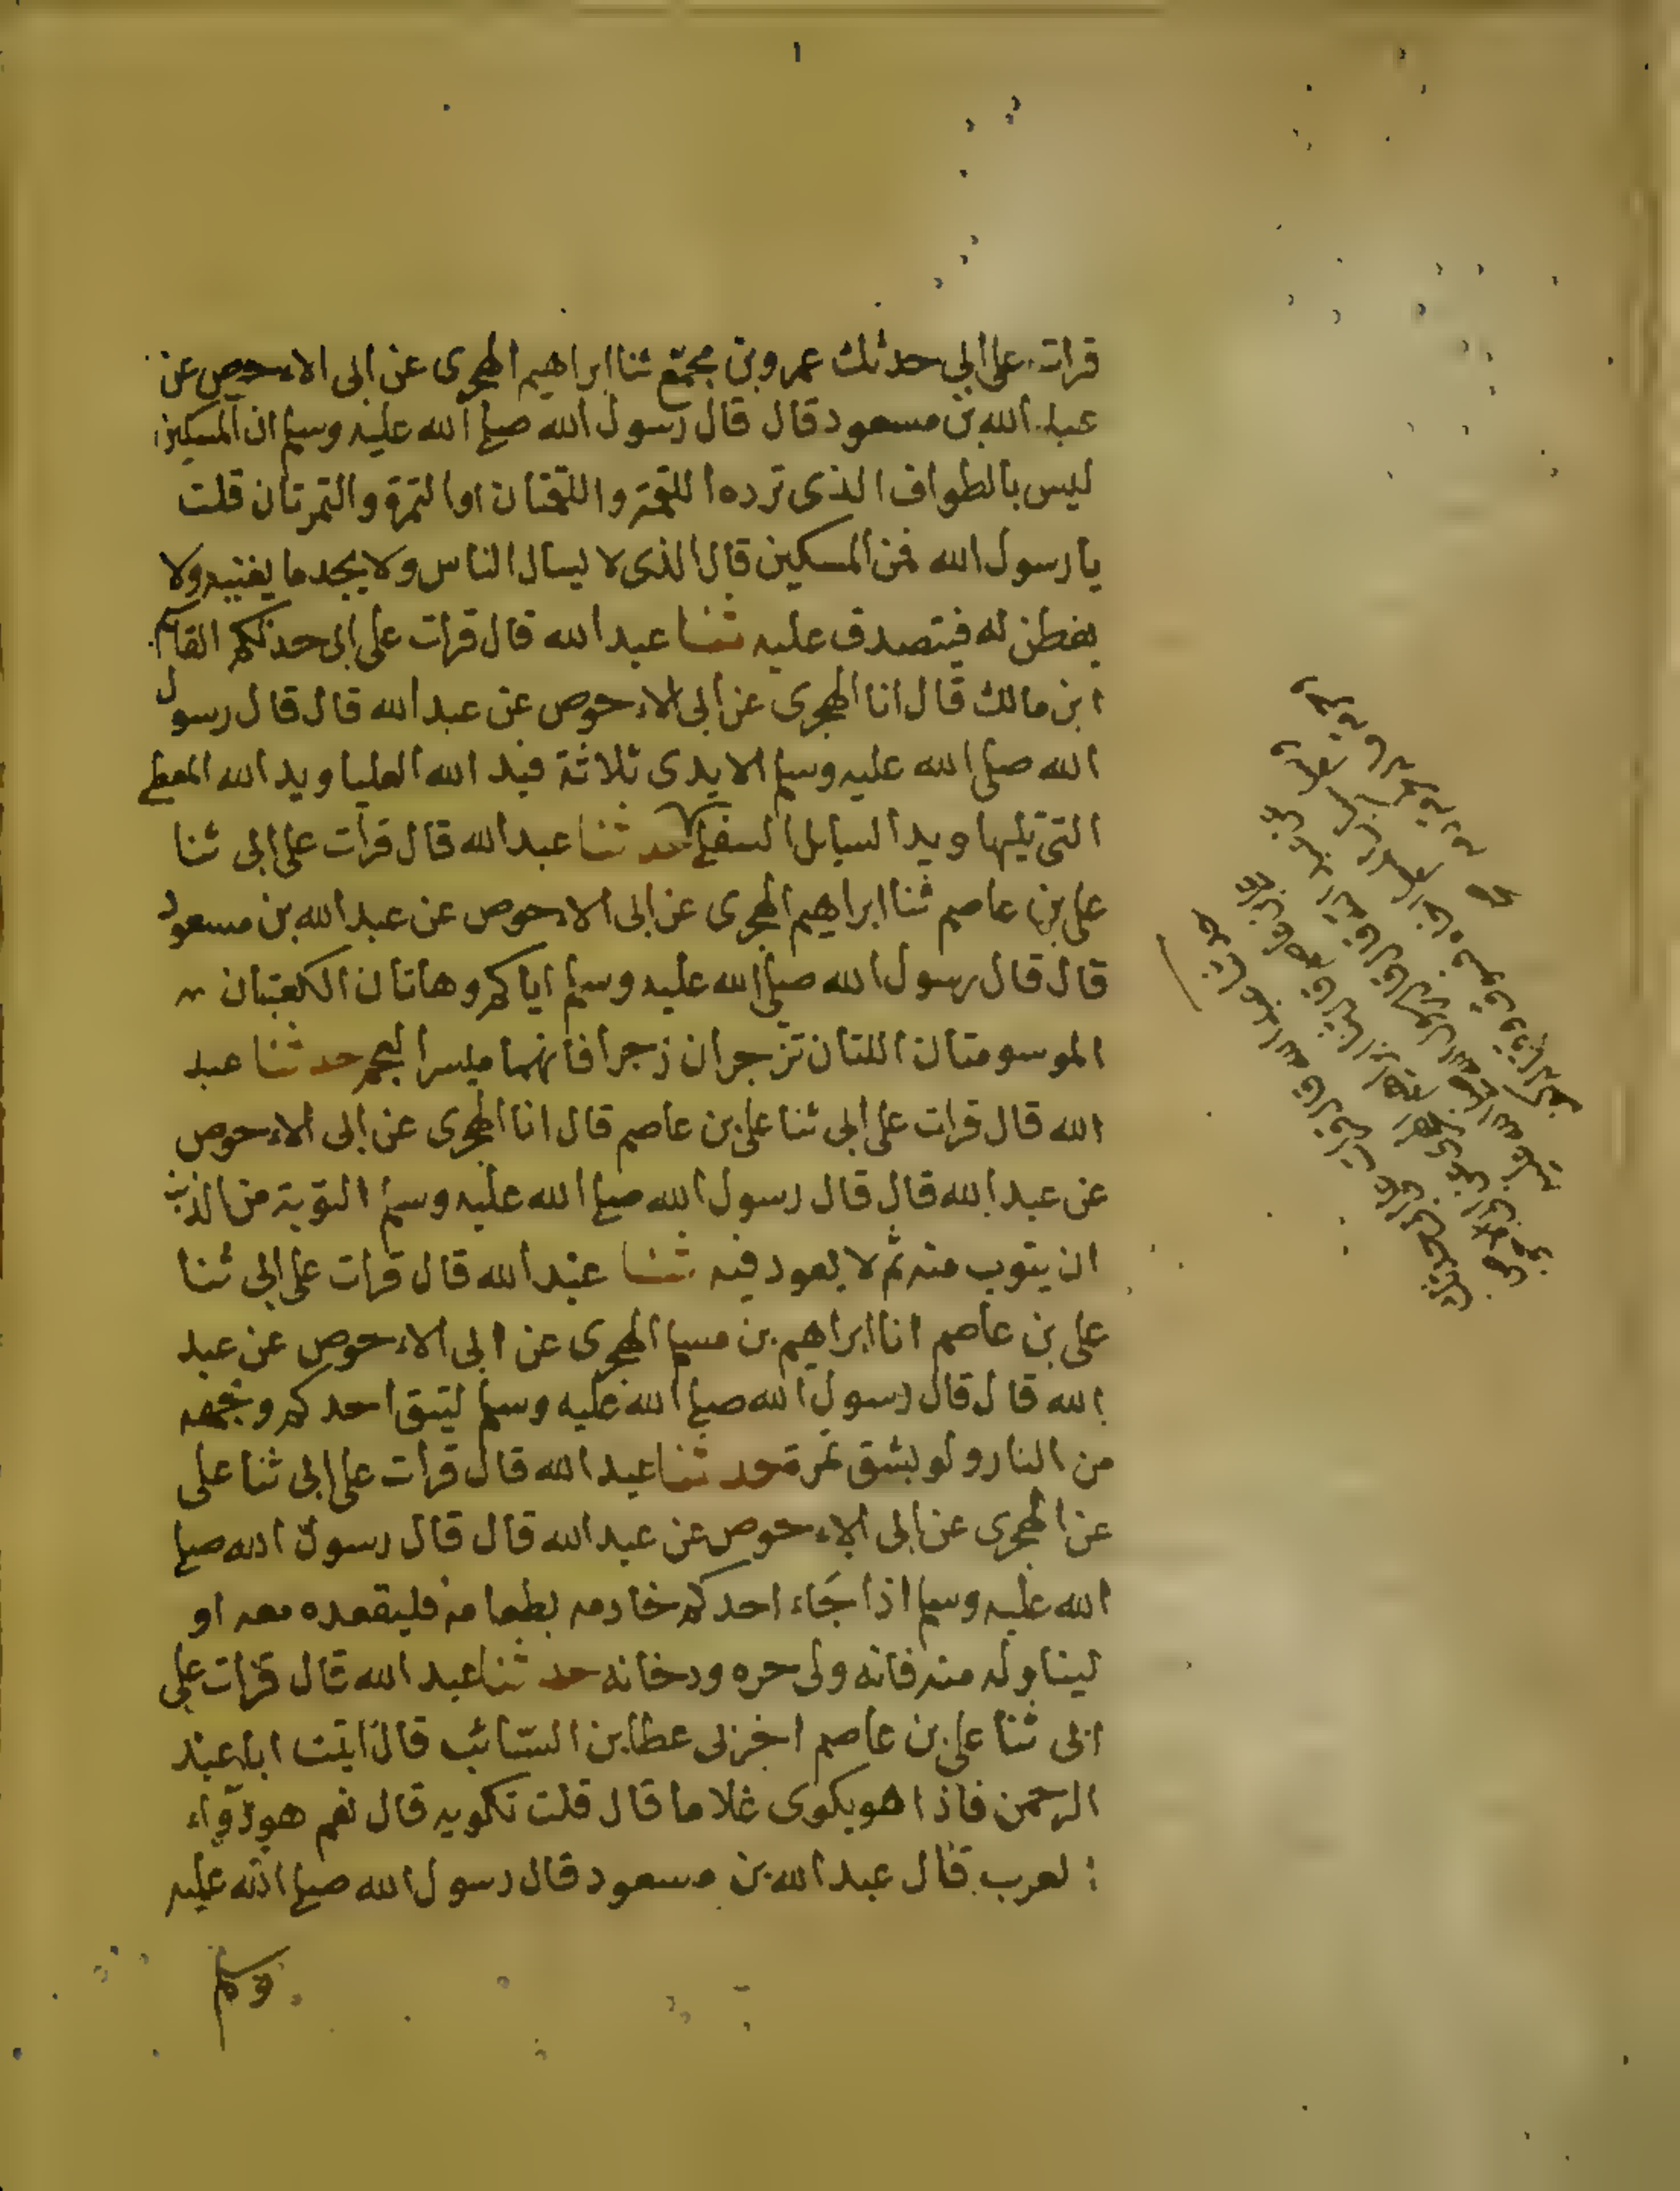 ١
قرات على ابى حدثك عمرو بن مجمّع ثنا ابراهيم الهجرى عن ابى الاءحوص عن
عبد الله بن مسعود قال قال رسول الله صلى الله عليه وسلم ان المسكين
ليس بالطواف الذى ترده اللقمة واللقمتان او التمرة والتمرتان قلت
يا رسول الله فمن المسكين قال الذى لا يسال الناس ولا يجد ما يغنيه ولا
يفطن له فيتصدق عليه ثنا عبد الله قال قرات على ابى حدثكم القاسم
ابن مالك قال انا الهجرى عن ابى الاءحوص عن عبد الله قال قال رسول
الله صلى الله عليه وسلم الايدى ثلاثة فيد الله العليا ويد الله المعطى
التى تليها ويد السايل السفلى حدثنا عبد الله قال قرات على ابى ثنا
على بن عاصم ثنا ابراهيم الهجرى عن ابى الاءحوص عن عبد الله بن مسعود
قال قال رسول الله صلى الله عليه وسلم اياكم وهاتان الكعبتان
الموسومتان اللتان تزجران زجرا فانهما ميسر العجم حدثنا عبد
الله قال قرات على ابى ثنا على بن عاصم قال انا الهجرى عن ابى الاءحوص
عن عبد الله قال قال رسول الله صلى الله عليه وسلم التوبة من الذنب
ان يتوب منه ثم لا يعود فيه ثنا عبد الله قال قرات على ابى ثنا
على بن عاصم انا ابراهيم بن مسلم الهجرى عن ابى الاءحوص عن عبد
الله قال قال رسول الله صلى الله عليه وسلم ليتق احدكم وجهه
من النار ولو بشق تمرة حدثنا عبد الله قال قرات على ابى ثنا على
عن الهجرى عن ابى الاءحوص عن عبد الله قال قال رسول الله صلى
الله عليه وسلم اذا جاء احدكم خادمه بطعامه فليقعده معه او
ليناوله منه فانه ولى حره ودخانه حدثنا عبد الله قال قرات على
ابى ثنا على بن عاصم اخبرنى عطا بن السّائب قال اتيت ابا عبد
الرحمن فاذا هو يكوى غلاما قال قلت تكويه قال نعم هو دواء
العرب قال عبد الله بن مسعود قال رسول الله صلى الله عليه
وسلم